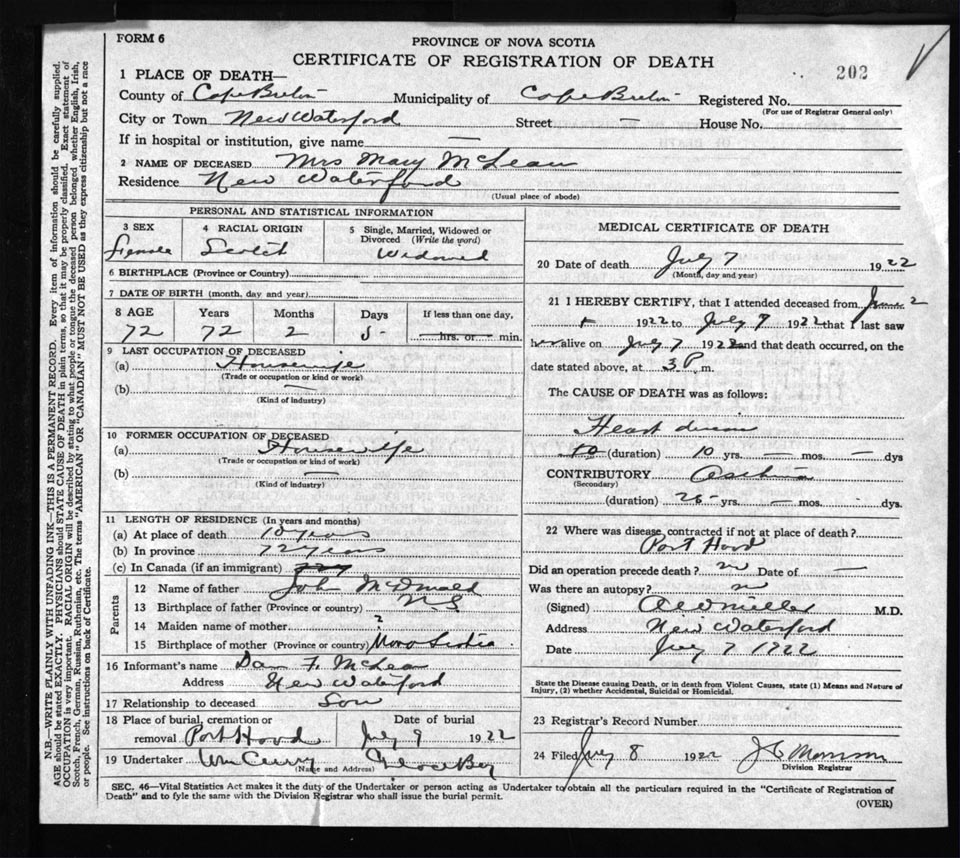 FORM 6
PROVINCE OF NOVA SCOTIA
CERTIFICATE OF REGISTRATION OF DEATH
202
1 PLACE OF DEATH—
County of Cape Breton Municipality of Cape Breton Registered No.
(For use of Registrar General only)
City or Town New Waterford Street — House No.
If in hospital or institution, give name —
2 NAME OF DECEASED Mrs Mary McLean
Residence New Waterford
(Usual place of abode)
PERSONAL AND STATISTICAL INFORMATION
3 SEX 4 RACIAL ORIGIN 5 Single, Married, Widowed or Divorced (Write the word)
Female Scotch Widowed
6 BIRTHPLACE (Province or Country)
7 DATE OF BIRTH (month, day and year)
8 AGE Years Months Days If less than one day,
72 72 2 5 hrs. or min.
9 LAST OCCUPATION OF DECEASED
(a) Housewife
(Trade or occupation or kind or work)
(b) —
(Kind of industry)
10 FORMER OCCUPATION OF DECEASED
(a) Housewife
(Trade or occupation or kind of work)
(b) —
(Kind of industry)
11 LENGTH OF RESIDENCE (In years and months)
(a) At place of death 10 years
(b) In province 72 years
(c) In Canada (if an immigrant)
Parents
12 Name of father John McDonald
13 Birthplace of father (Province or country) N S
14 Maiden name of mother ?
15 Birthplace of mother (Province or country) Nova Scotia
16 Informant's name Dan F. McLean
Address New Waterford
17 Relationship to deceased Son
18 Place of burial, cremation or removal Port Hood
Date of burial July 9 1922
19 Undertaker Wm Curry Glace Bay
(Name and Address)
MEDICAL CERTIFICATE OF DEATH
20 Date of death July 7 1922
(Month, day and year)
21 I HEREBY CERTIFY, that I attended deceased from June 2
1922 to July 7 1922 that I last saw
her alive on July 7 1922 and that death occurred, on the
date stated above, at 3 P. m.
The CAUSE OF DEATH was as follows:
Heart disease
(duration) 10 yrs. — mos. — dys
CONTRIBUTORY Asthma
(Secondary)
(duration) 25 yrs. — mos. dys.
22 Where was disease contracted if not at place of death?
Port Hood
Did an operation precede death? no Date of —
Was there an autopsy? no
(Signed) M.D.
Address New Waterford
Date July 7 1922
State the Disease causing Death, or in death from Violent Causes, state (1) Means and Nature of
Injury, (2) whether Accidental, Suicidal or Homicidal.
23 Registrar's Record Number
24 Filed July 8 1922
Division Registrar
SEC. 46—Vital Statistics Act makes it the duty of the Undertaker or person acting as Undertaker to obtain all the particulars required in the "Certificate of Registration of
Death" and to fyle the same with the Division Registrar who shall issue the burial permit.
(OVER)
N.B.—WRITE PLAINLY WITH UNFADING INK—THIS IS A PERMANENT RECORD. Every item of information should be carefully supplied.
AGE should be stated EXACTLY. PHYSICIANS should STATE CAUSE OF DEATH in plain terms, so that it may be properly classified. Exact statement of
OCCUPATION is very important. RACIAL ORIGIN will be described by stating to what people or tongue the deceased person belonged whether English, Irish,
Scotch, French, German, Russian, Ruthenian, etc. The terms "AMERICAN" OR "CANADIAN" MUST NOT BE USED as they express citizenship but not a race
or people. See instructions on back of Certificate.